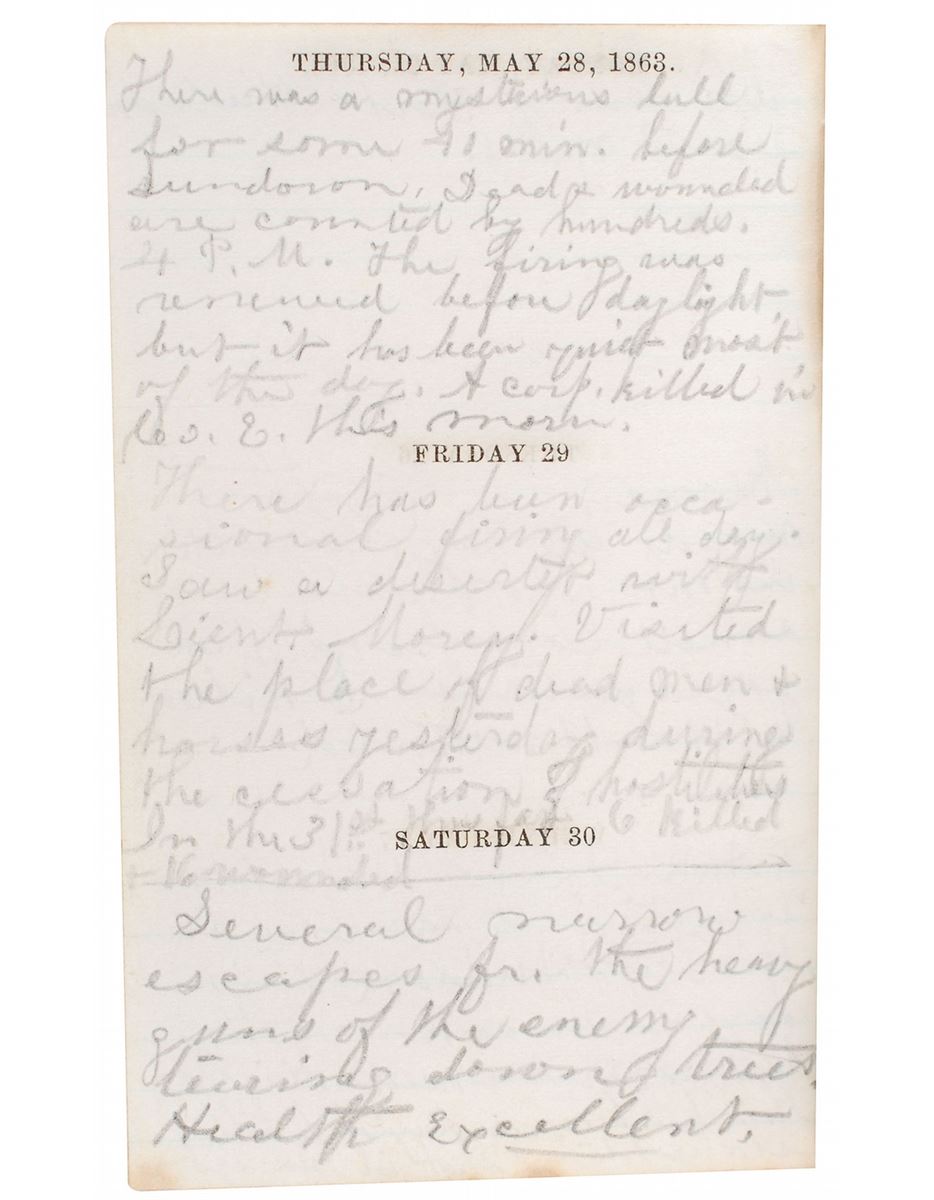 THURSDAY, MAY 28, 1863.
There was a mysterious lull
for some 90 min. before
Sundown. Dead & wounded
are counted by hundreds.
4 P. M. The firing was
renewed before daylight,
but it has been quiet most
of the day. A corp. killed in
Co. E. this morn.
FRIDAY 29
There has been occa-
sional firing all day.
Saw a deserter with
Lieut Morey. Visited
the place of dead men &
horses yesterday during
the cessation of hostilities
In the 31st thus far 6 killed
SATURDAY 30
+ wounded
Several narrow
escapes fr. the heavy
guns of the enemy
tearing down trees.
Health Excellent.